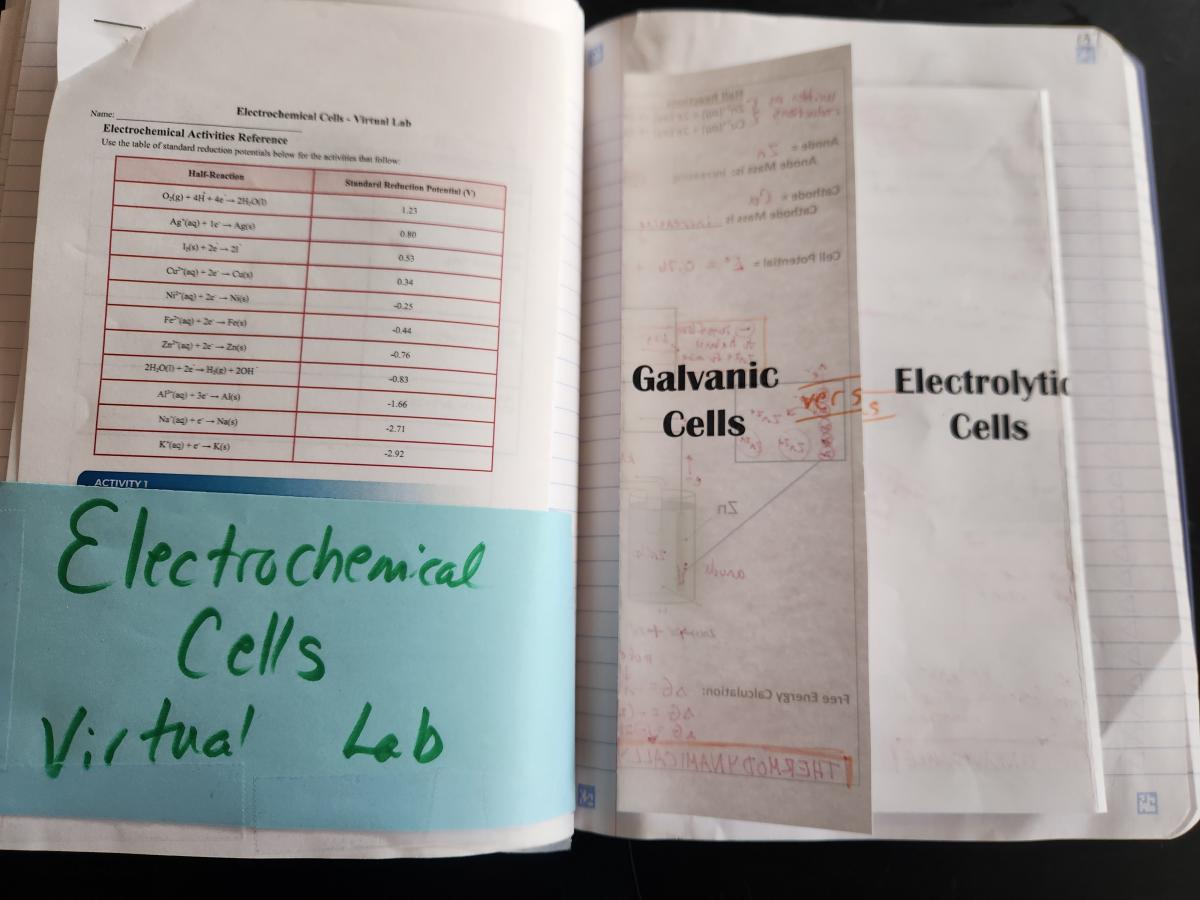 Electrochemical Cells - Virtual Lab
Name:
Electrochemical Activities Reference
Use the table of standard reduction potentials below for the activities that follow:
Half-Reaction Standard Reduction Potential (V)
O₂(g) + 4H⁺ + 4e⁻ → 2H₂O(l) 1.23
Ag⁺(aq) + 1e⁻ → Ag(s) 0.80
I₂(s) + 2e⁻ → 2I⁻ 0.53
Cu²⁺(aq) + 2e⁻ → Cu(s) 0.34
Ni²⁺(aq) + 2e⁻ → Ni(s) -0.25
Fe²⁺(aq) + 2e⁻ → Fe(s) -0.44
Zn²⁺(aq) + 2e⁻ → Zn(s) -0.76
2H₂O(l) + 2e⁻ → H₂(g) + 2OH⁻ -0.83
Al³⁺(aq) + 3e⁻ → Al(s) -1.66
Na⁺(aq) + e⁻ → Na(s) -2.71
K⁺(aq) + e⁻ → K(s) -2.92
ACTIVITY 1
Electrochemical
Cells
Virtual Lab
Half Reactions
written as
reductions
Anode = Zn
Anode Mass is: Increasing
Cathode = Cu
Cathode Mass is increasing
Cell Potential = E° = 0.76 +
Galvanic
Cells
Electrolytic
Cells
Zn
anode
Free Energy Calculation:
ΔG =
THERMODYNAMICALLY